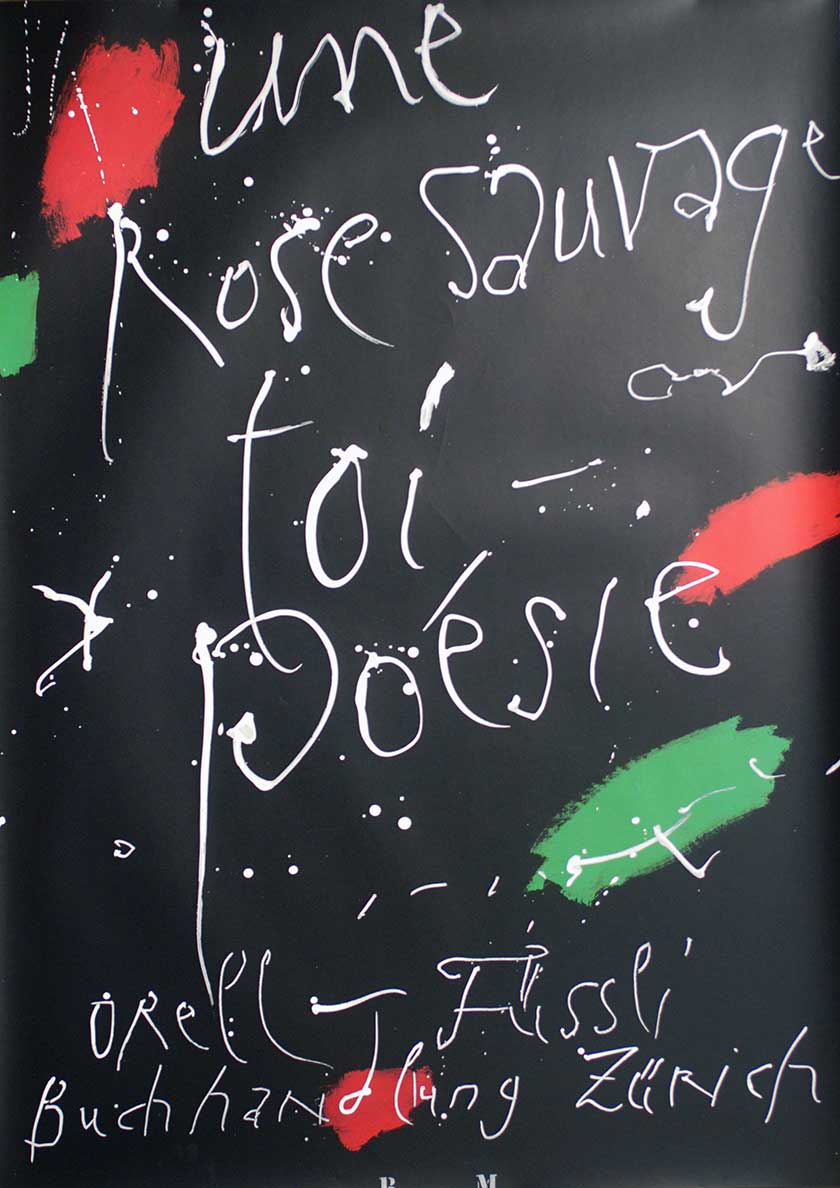 une
Rose Sauvage
toi -
poésie
ORell Füssli
BuchhaNdlung ZüRich